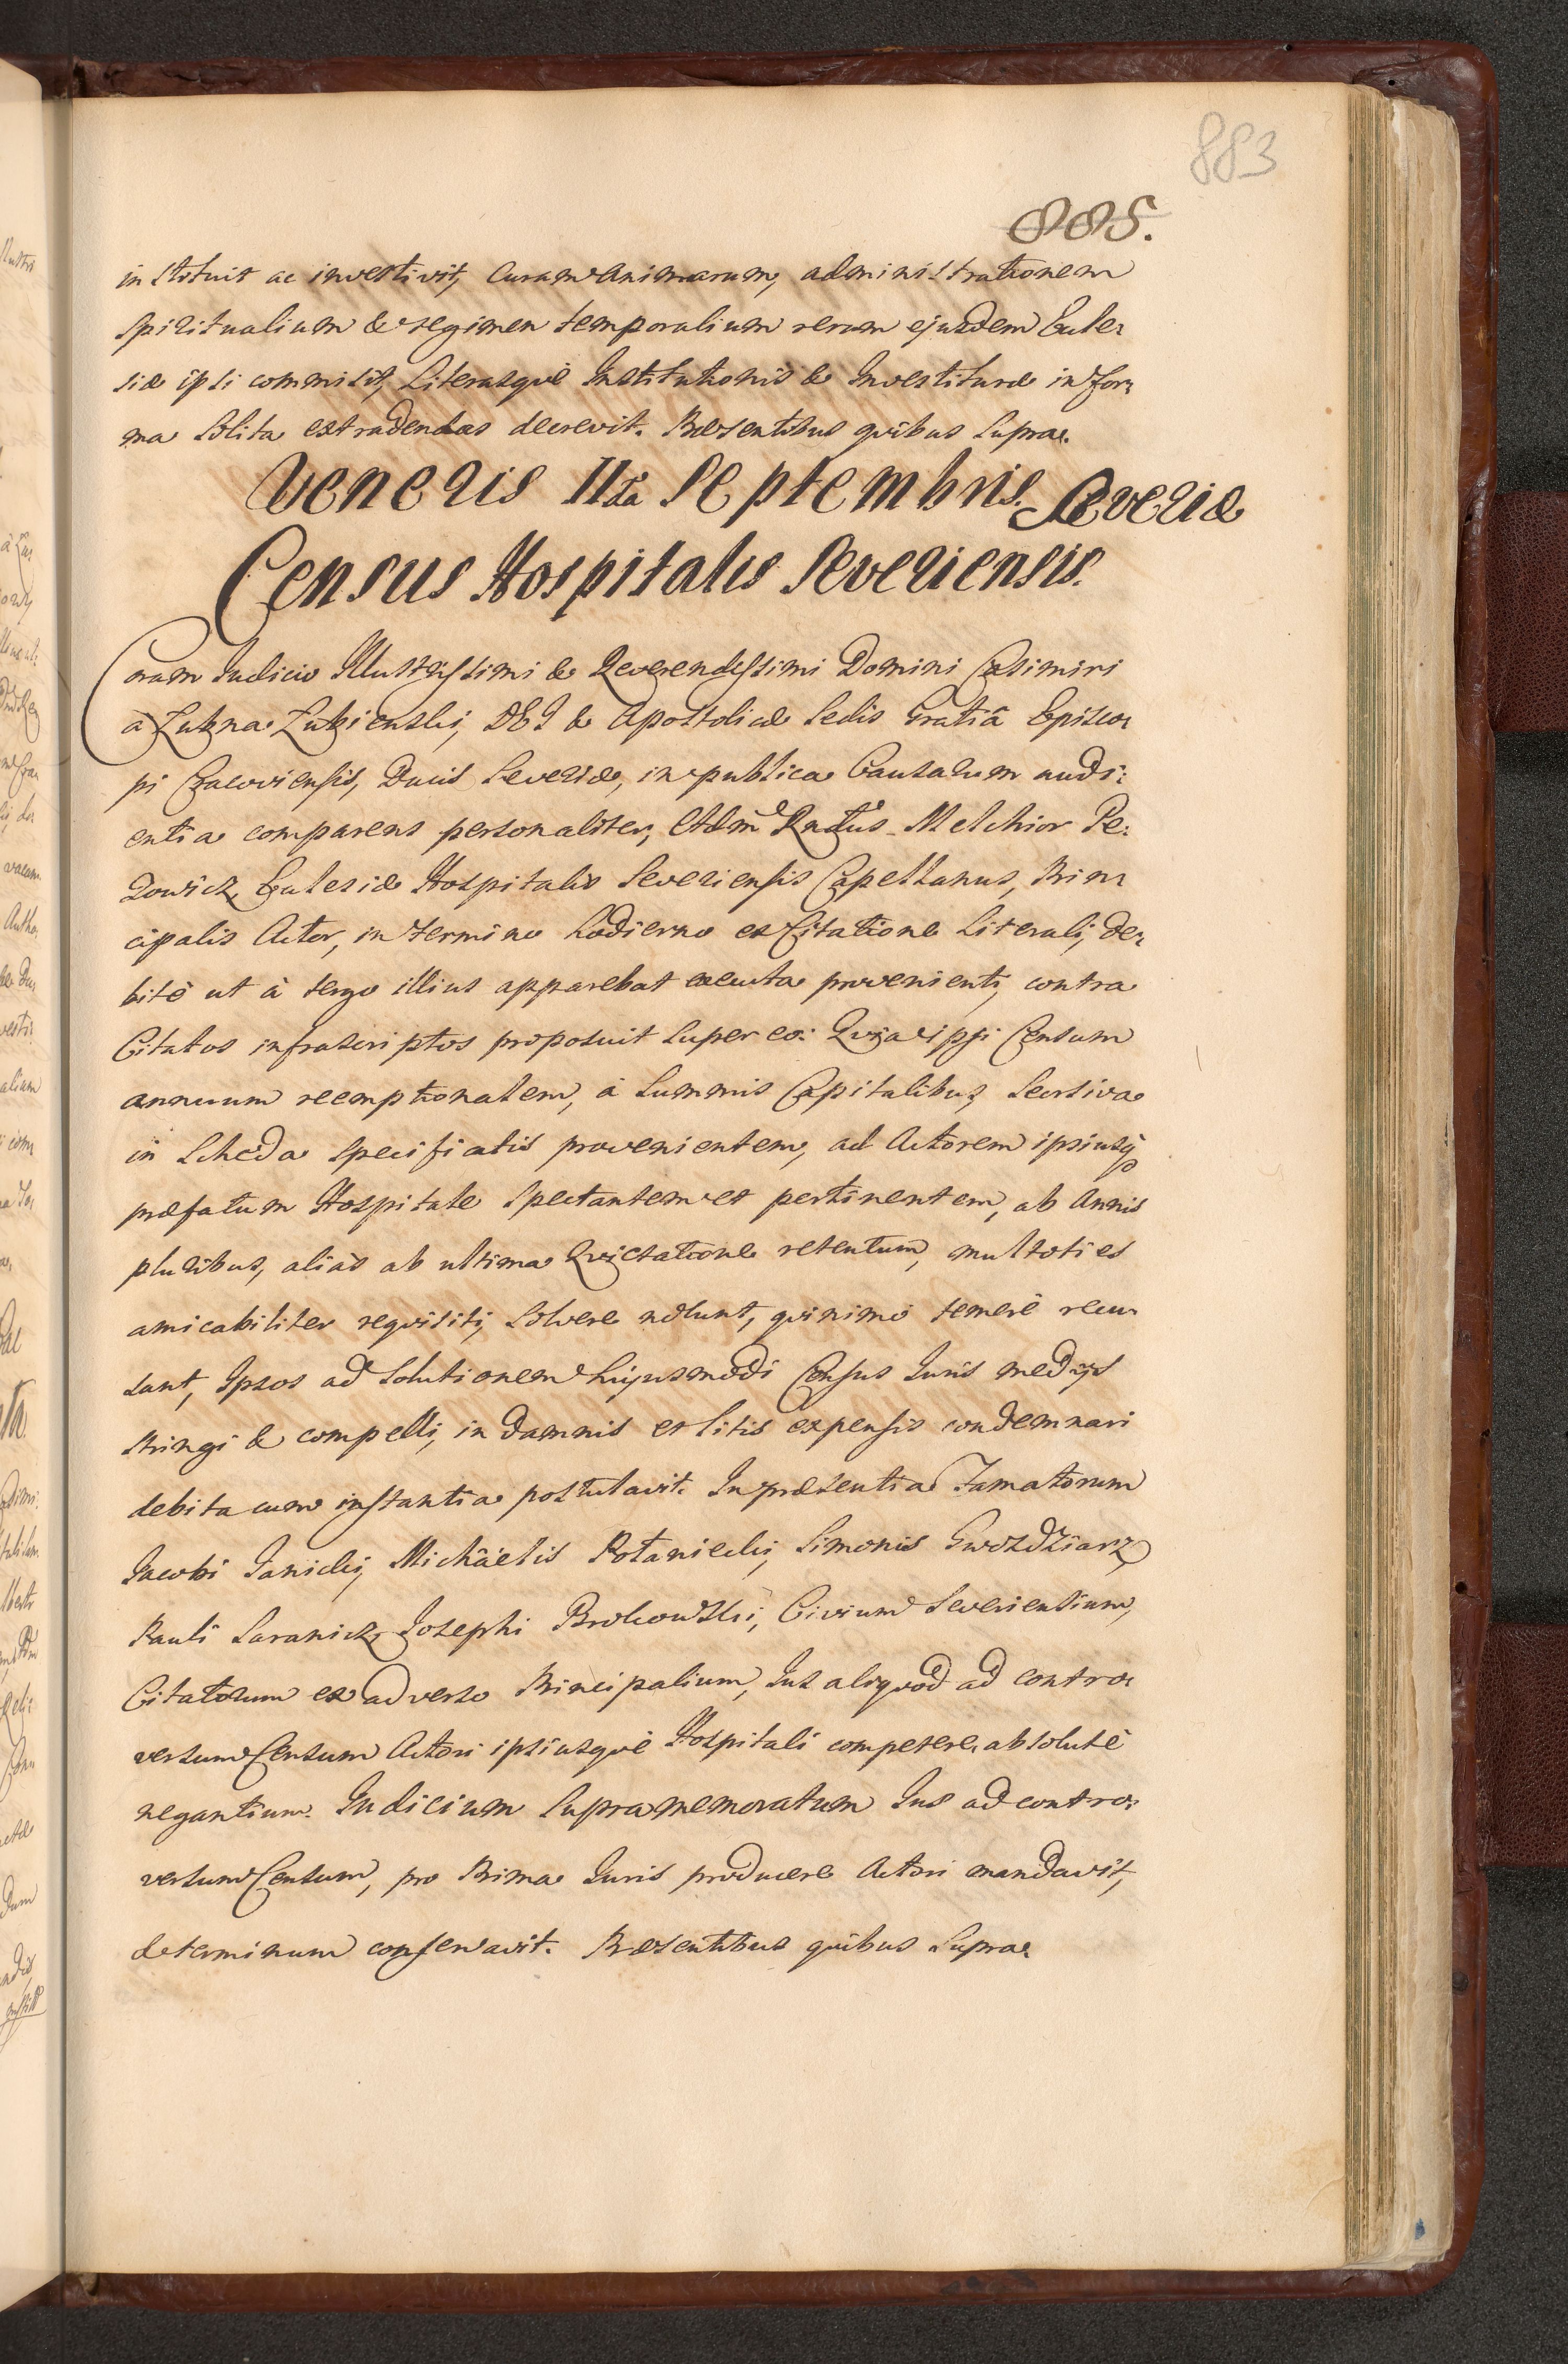 883
885.
instituit ac investivit, Curam Animarum, administrationem
Spiritualium & regimen temporalium rerum ejusdem Eccle:
siæ ipsi commisit, Literasquè Institutionis & Investituræ in for:
ma solita extradendas decrevit. Præsentibus quibus supra.
Veneris IIda Septembris. Severiæ
Census Hospitalis Severiensis.
Coram Judicio Illustrissimi & Reverendissimi Domini Casimiri
à Łubna Łubienski, DEI & Apostolicæ Sedis Gratiâ Episco:
pi Cracoviensis, Ducis Severiæ, in publica Causarum audi:
entia comparens personaliter, Adm Rndus Melchior Pe:
dowicz Ecclesiæ Hospitalis Severiensis Capellanus, Prin:
cipalis Actor, in termino hodierno ex Citatione Literali, de:
bitè ut à tergo illius apparebat executa provenienti, contra
Citatos infrascriptos proposuit super eo: Quia ipsi Censum
annuum reemptionalem, à Summis Capitalibus, Seorsiva
in Scheda specificatis provenientem, ad Actorem ipsiusq
præfatum Hospitale spectantem et pertinentem, ab Annis
pluribus, aliàs ab ultima Quictatione retentum, multoties
amicabiliter requisiti, solvere nolunt, quinimò temerè recu:
sant, Ipsos ad solutionem hujusmodi Census Juris medijs
stringi & compelli, in damnis et litis expensis condemnari
debita cum instantia postulavit. In præsentia Famatorum
Jacobi Janicki, Michäelis Potanicki, Simonis Gwozdziarz,
Pauli Saranicz, Josephi Brokowski, Civium Severiensium,
Citatorum ex adverso Principalium, Jus aliquod ad contro:
versum Censum Actori ipsiusquè Hospitali competere, absolutè
negantium. Judicium supramemoratum Jus ad contro:
versum Censum, pro Prima Juris producere Actori mandavit,
& terminum conservavit. Præsentibus quibus supra.